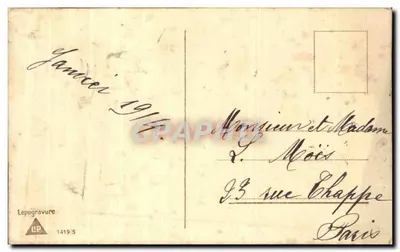 Janvier 19
Monsieur et Madame
L. Moës
23 rue Chappe
Paris
Lepogravure
LP
1419/3
CPHPHI